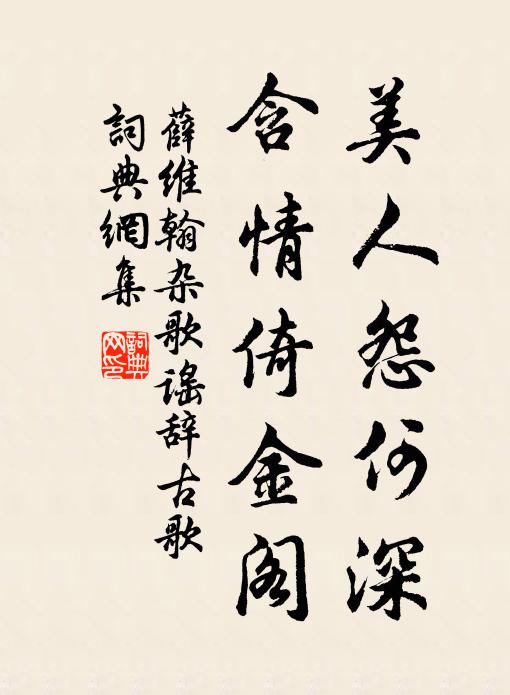 美人怨何深
含情倚金阁
薛维翰杂歌谣辞古歌
詞典網集
詞典网印